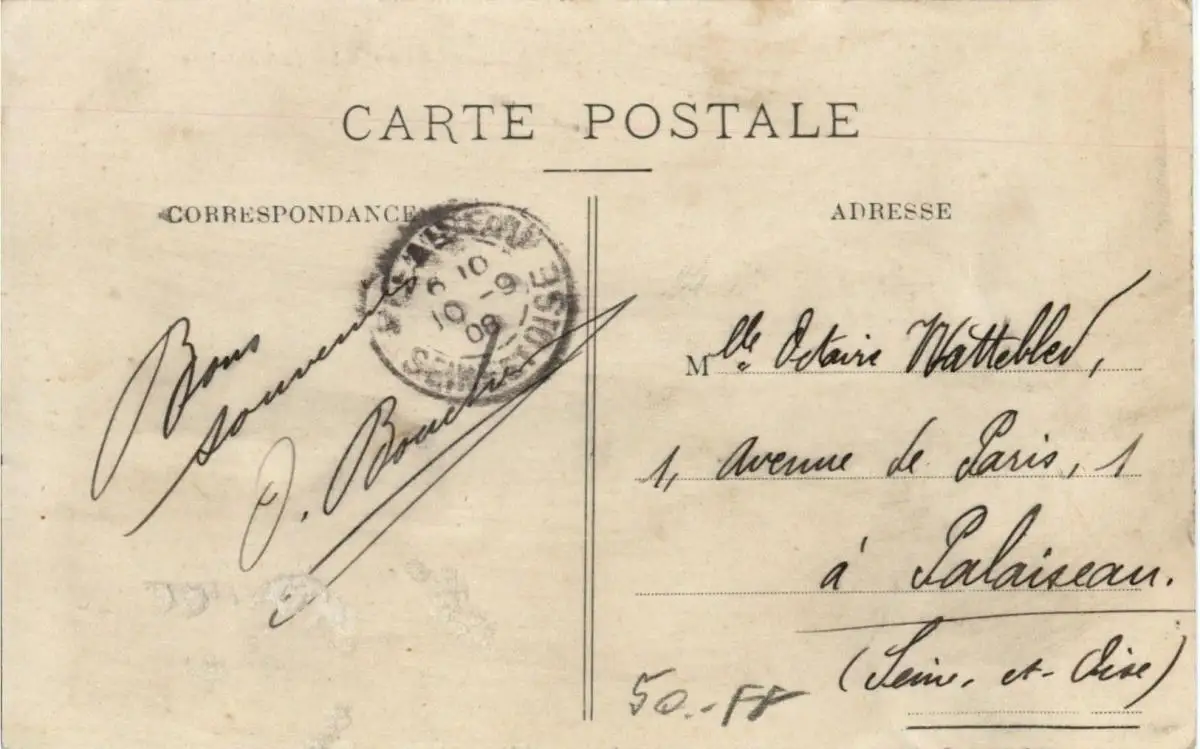 CARTE POSTALE
CORRESPONDANCE
Bons
souvenirs
PALAISEAU
6 10
10 - 9
08
SEINE-ET-OISE
ADRESSE
Mlle Octavie Wattebled,
1, Avenue de Paris, 1
à Palaiseau.
(Seine-et-Oise)
50.- FF